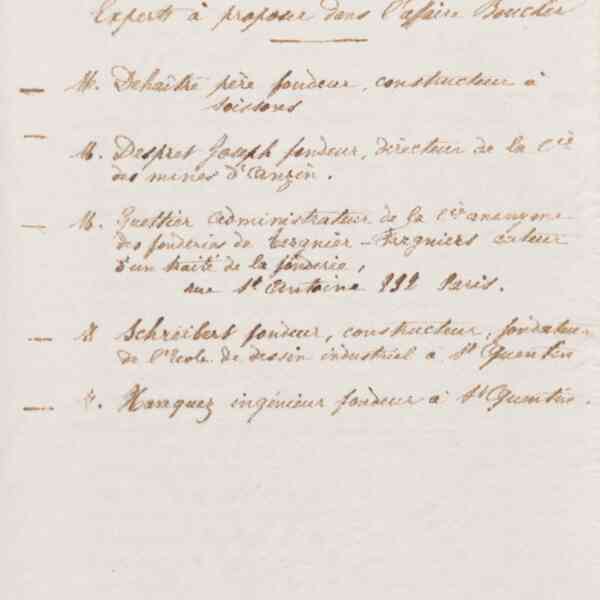 Experts à proposer dans l'affaire Boucher
— M. Dehaitre père fondeur, constructeur à
Soissons
— M. Despret Joseph fondeur, directeur de la Cie
des mines d'Anzin.
— M. Guettier administrateur de la Cie anonyme
des fonderies de Tergnier - Fargniers auteur
d'un traité de la fonderie,
rue St Antoine 212 Paris.
— M Schreibert fondeur, constructeur, fondateur
de l'école de dessin industriel à St Quentin
— M. ingénieur fondeur à St Quentin.